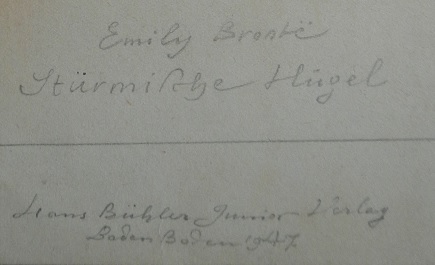 Emily Brontë
Stürmische Hügel
Hans Bühler Junior Verlag
Baden Baden 1947